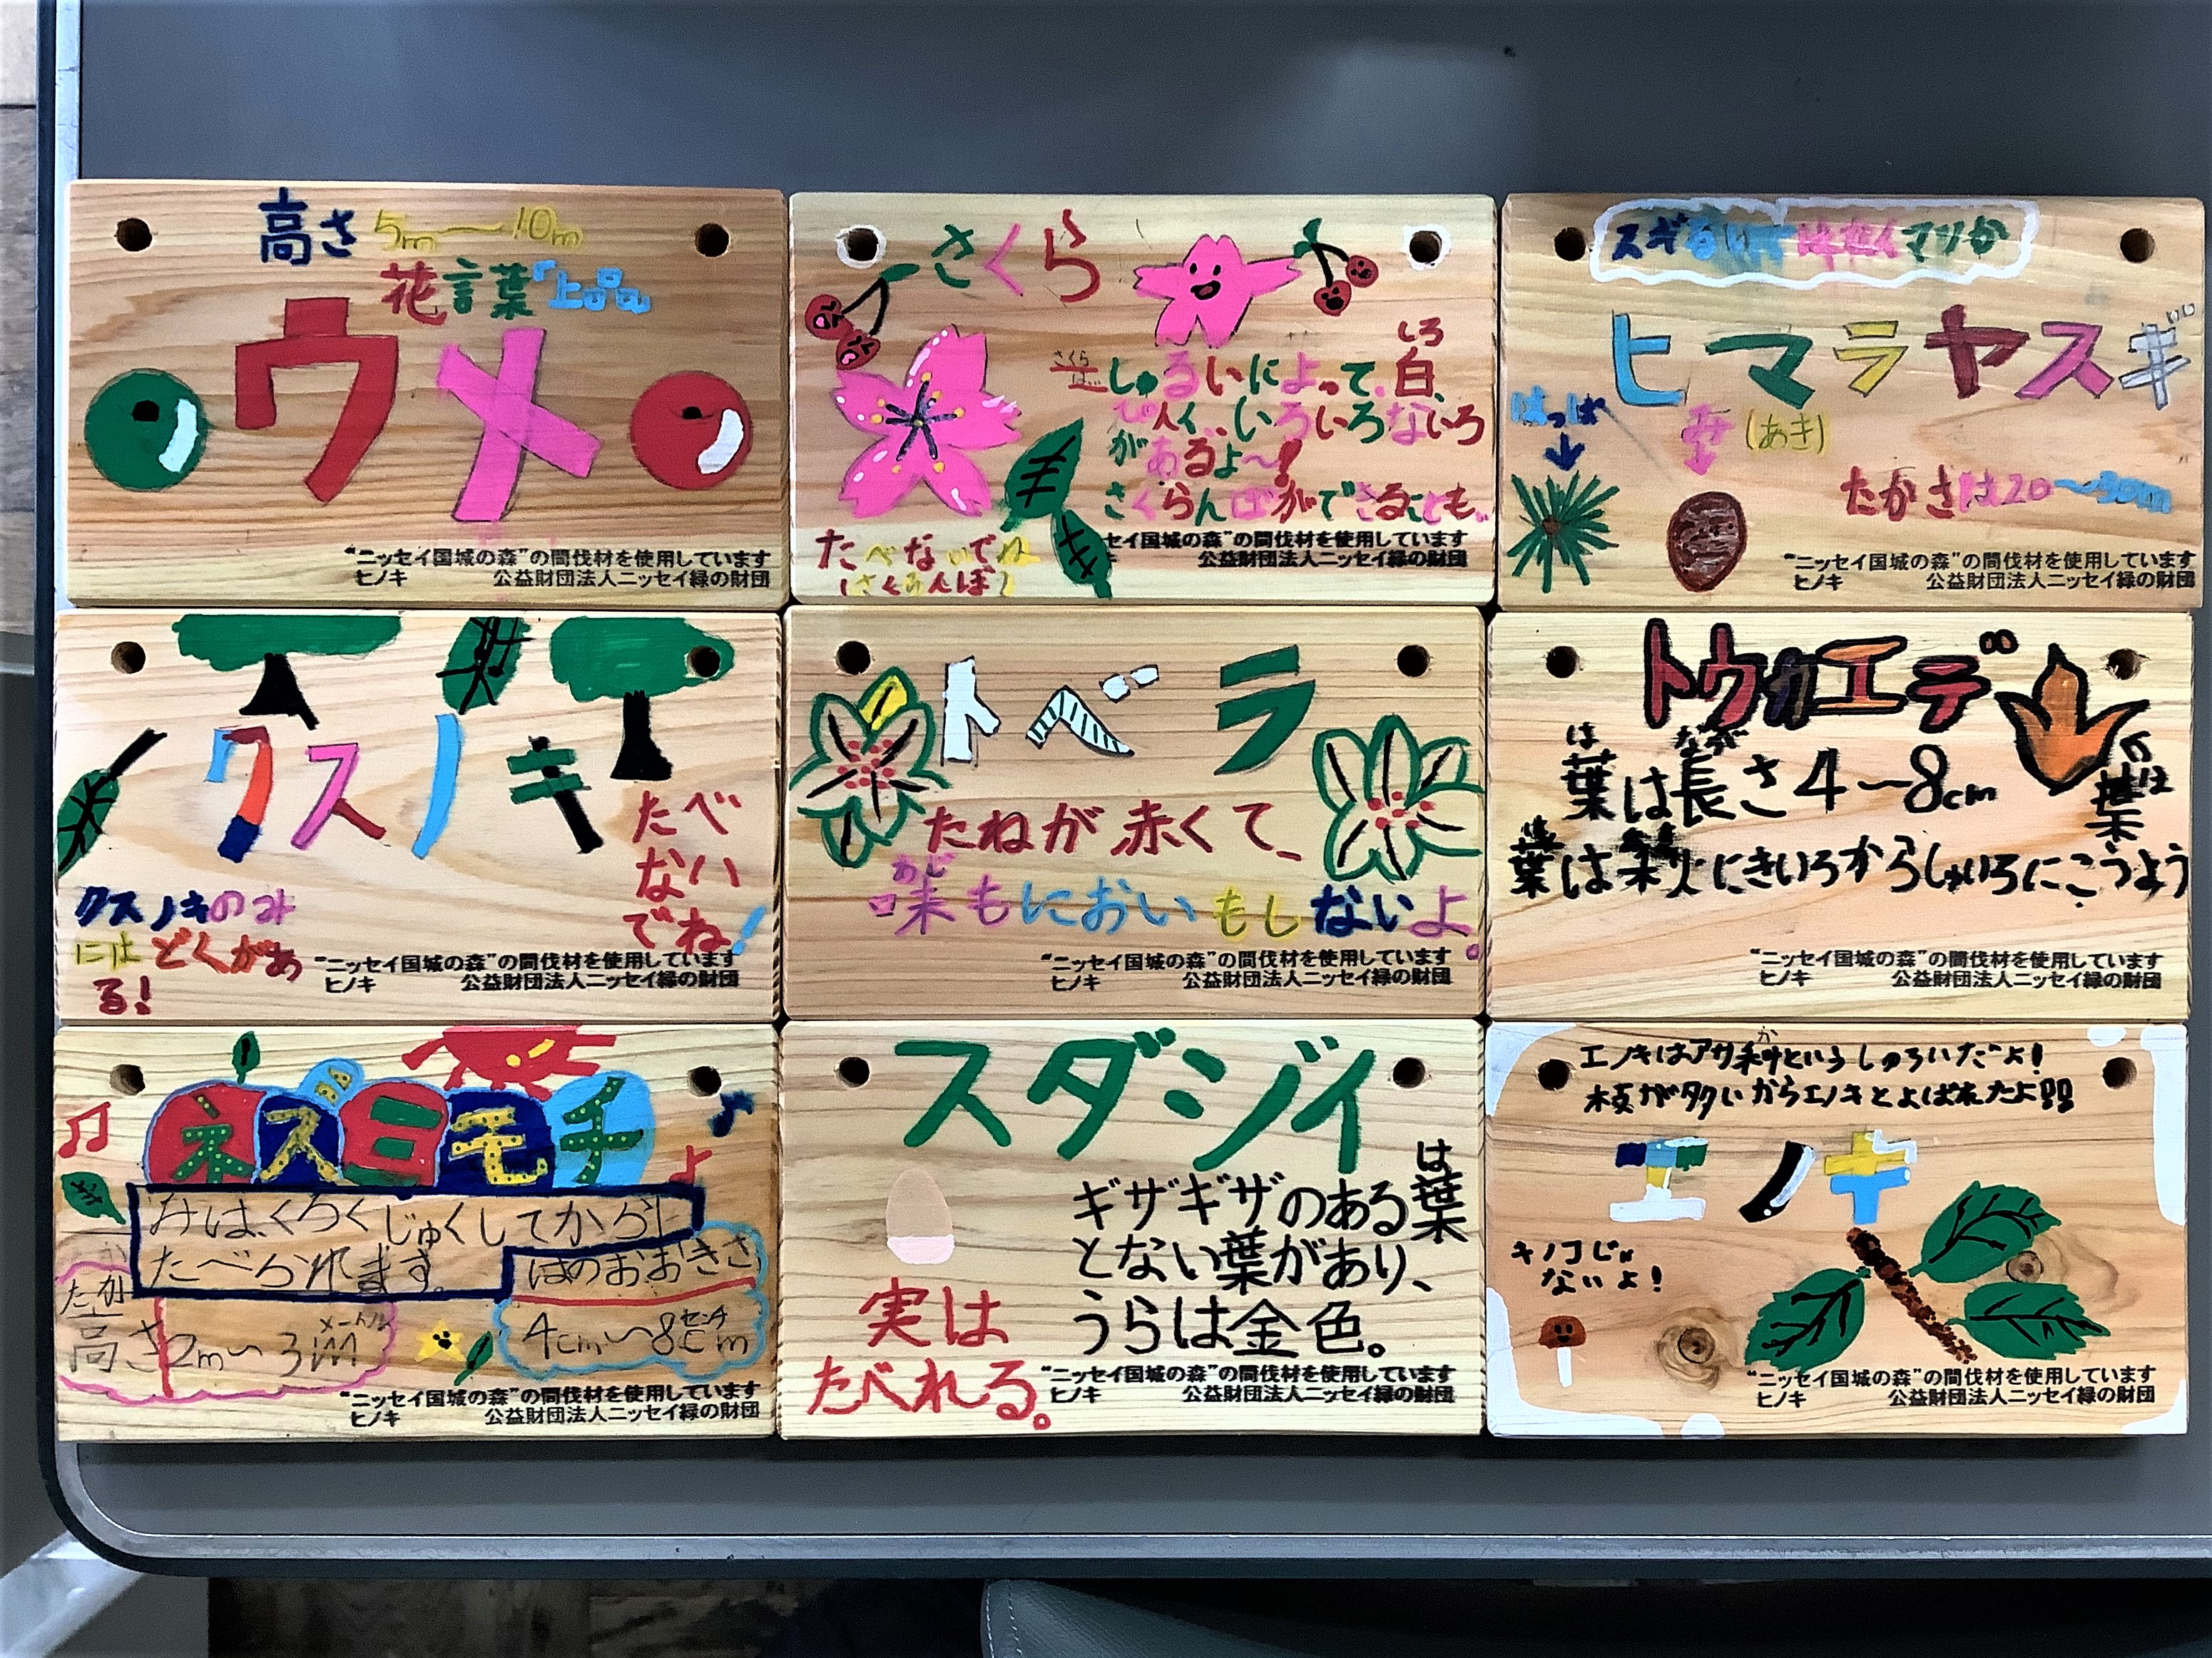 高さ 5m〜10m
花言葉「上品」
ウメ
“ニッセイ国城の森”の間伐材を使用しています
ヒノキ 公益財団法人ニッセイ緑の財団
さくら
さくらは…
しゅるいによって、白、
しろ
ピンク、いろいろないろ
があるよ〜!
さくらんぼができることも。
たべないでね
(さくらんぼ)
セイ国城の森”の間伐材を使用しています
キ 公益財団法人ニッセイ緑の財団
スギるいではなくマツか
ヒマラヤスギ
はっぱ
み
(あき)
たかさは20〜30m
“ニッセイ国城の森”の間伐材を使用しています
ヒノキ 公益財団法人ニッセイ緑の財団
クスノキ
たべ
ない
でね!
クスノキのみ
にはどくがあ
る!
“ニッセイ国城の森”の間伐材を使用しています
ヒノキ 公益財団法人ニッセイ緑の財団
トベラ
たねが赤くて、
あじ
味もにおいもしないよ。
“ニッセイ国城の森”の間伐材を使用しています
ヒノキ 公益財団法人ニッセイ緑の財団
トウカエデ
は なが
葉は長さ4〜8cm
葉
は
葉は秋にきいろからしゅいろにこうよう
“ニッセイ国城の森”の間伐材を使用しています
ヒノキ 公益財団法人ニッセイ緑の財団
ネズミモチ
みは、くろくじゅくしてから
たべられます。
たか
高さ2m〜3m
メートル
はのおおきさ
センチ
4cm〜8cm
“ニッセイ国城の森”の間伐材を使用しています
ヒノキ 公益財団法人ニッセイ緑の財団
スダジイ
は
ギザギザのある葉
とない葉があり、
うらは金色。
実は
たべれる。
“ニッセイ国城の森”の間伐材を使用しています
ヒノキ 公益財団法人ニッセイ緑の財団
か
エノキはアサ科というしゅるいだよ!
枝が多いからエノキとよばれたよ!!
エノキ
キノコじゃ
ないよ!
“ニッセイ国城の森”の間伐材を使用しています
ヒノキ 公益財団法人ニッセイ緑の財団